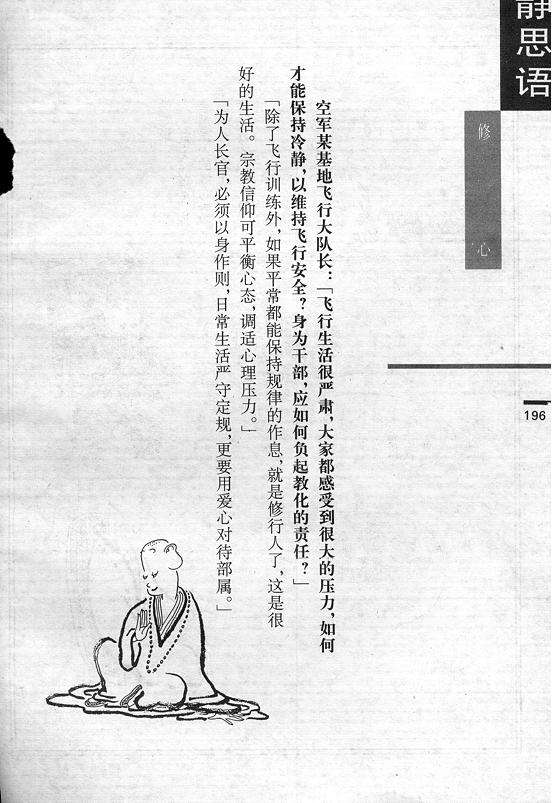 静思语
修心
196
空军某基地飞行大队长：「飞行生活很严肃，大家都感受到很大的压力，如何
才能保持冷静，以维持飞行安全？身为干部，应如何负起教化的责任？」
「除了飞行训练外，如果平常都能保持规律的作息，就是修行人了，这是很
好的生活。宗教信仰可平衡心态，调适心理压力。」
「为人长官，必须以身作则，日常生活严守定规，更要用爱心对待部属。」